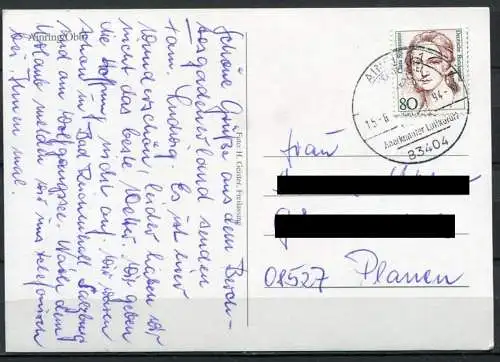 Ainring/Obb.
Schöne Grüße aus dem Berch-
tesgadener Land senden
Fam. Ludwig. Es ist hier
wunderschön, leider haben wir
nicht das beste Wetter. Wir geben
die Hoffnung nicht auf. Wir waren
schon in Bad Reichenhall, Salzburg
und am Wolfgangsee. Nach dem
Urlaub melden wir uns telefonisch
bei Ihnen mal.
Foto H. Gerster, Freilassung
Deutsche Bundespost
80
15.-6
94.-
Anerkannter Luftkurort
83404
Frau
01527 Plauen